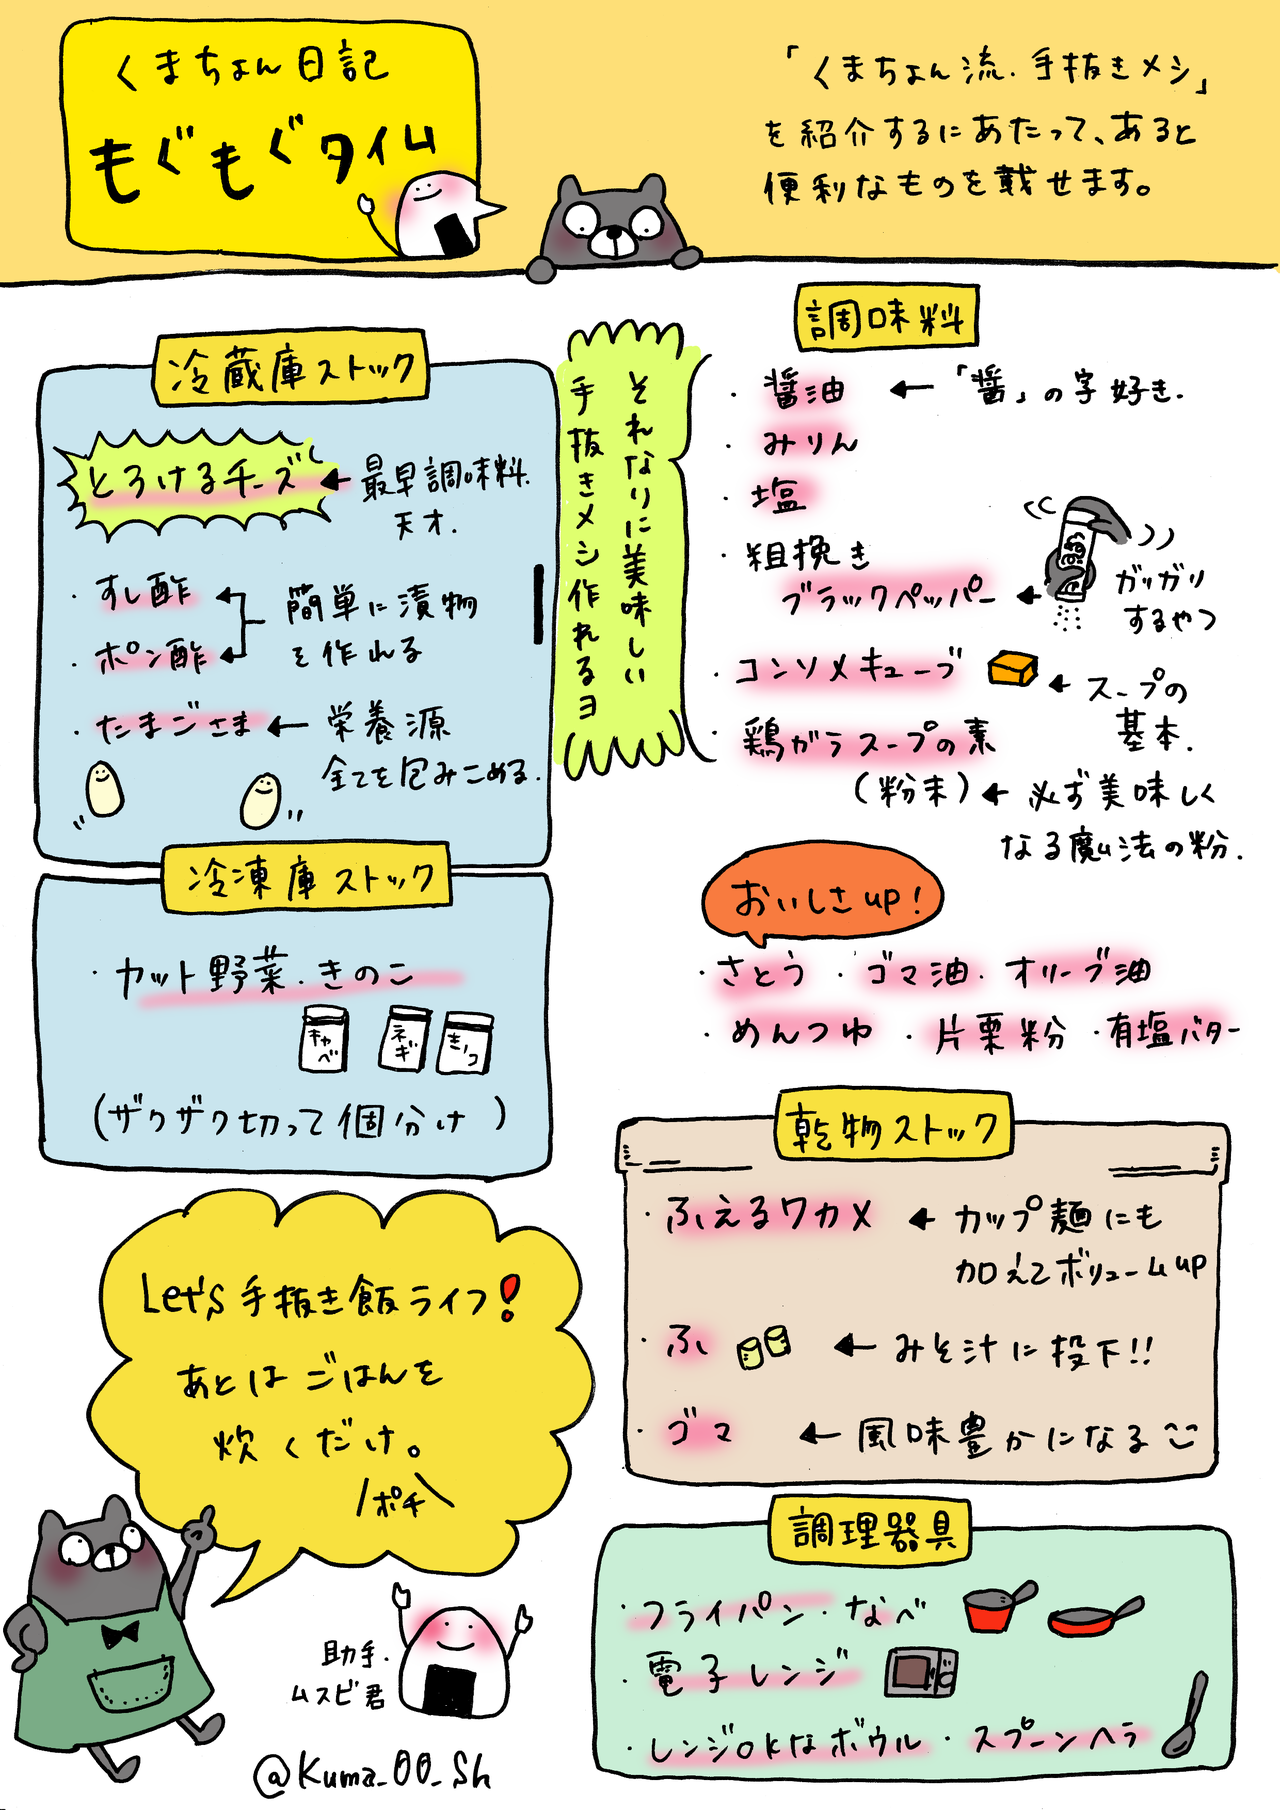 くまちょん日記
もぐもぐタイム
「くまちょん流.手抜きメシ」
を紹介するにあたって、あると
便利なものを載せます。
冷蔵庫ストック
とろけるチーズ ← 最早調味料.
天才.
・すし酢
・ポン酢
← 簡単に漬物
を作れる
・たまごさま ← 栄養源
全てを包みこめる.
冷凍庫ストック
・カット野菜.きのこ
キャベ
ネギ
きのこ
(ザクザク切って個分け)
それなりに美味しい
手抜きメシ作れるヨ
調味料
・醤油 ← 「醤」の字好き.
・みりん
・塩
・粗挽き
ブラックペッパー ← ガリガリ
するやつ
・コンソメキューブ ← スープの
基本.
・鶏ガラスープの素
(粉末) ← 必ず美味しく
なる魔法の粉.
おいしさup!
・さとう ・ゴマ油 ・オリーブ油
・めんつゆ ・片栗粉 ・有塩バター
乾物ストック
・ふえるワカメ ← カップ麺にも
加えてボリュームup
・ふ ← みそ汁に投下!!
・ゴマ ← 風味豊かになる
調理器具
・フライパン・なべ
・電子レンジ
・レンジokなボウル ・スプーンヘラ
Let's 手抜き飯ライフ!
あとはごはんを
炊くだけ。
/ポチ\
助手.
ムスビ君
@Kuma_00_Sh